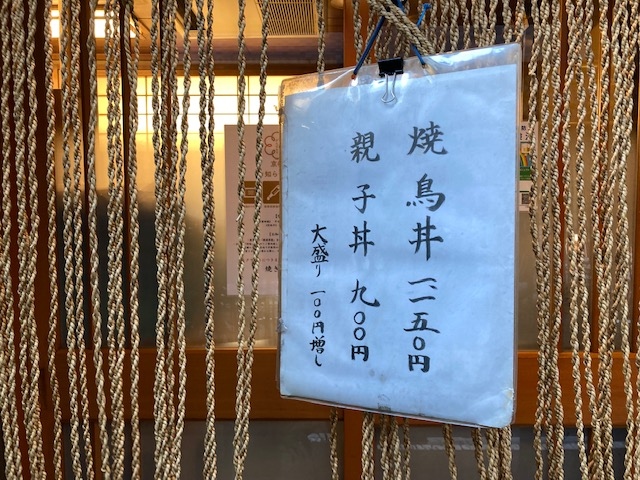 焼鳥丼 一二五〇円
親子丼 九〇〇円
大盛り 一〇〇円増し